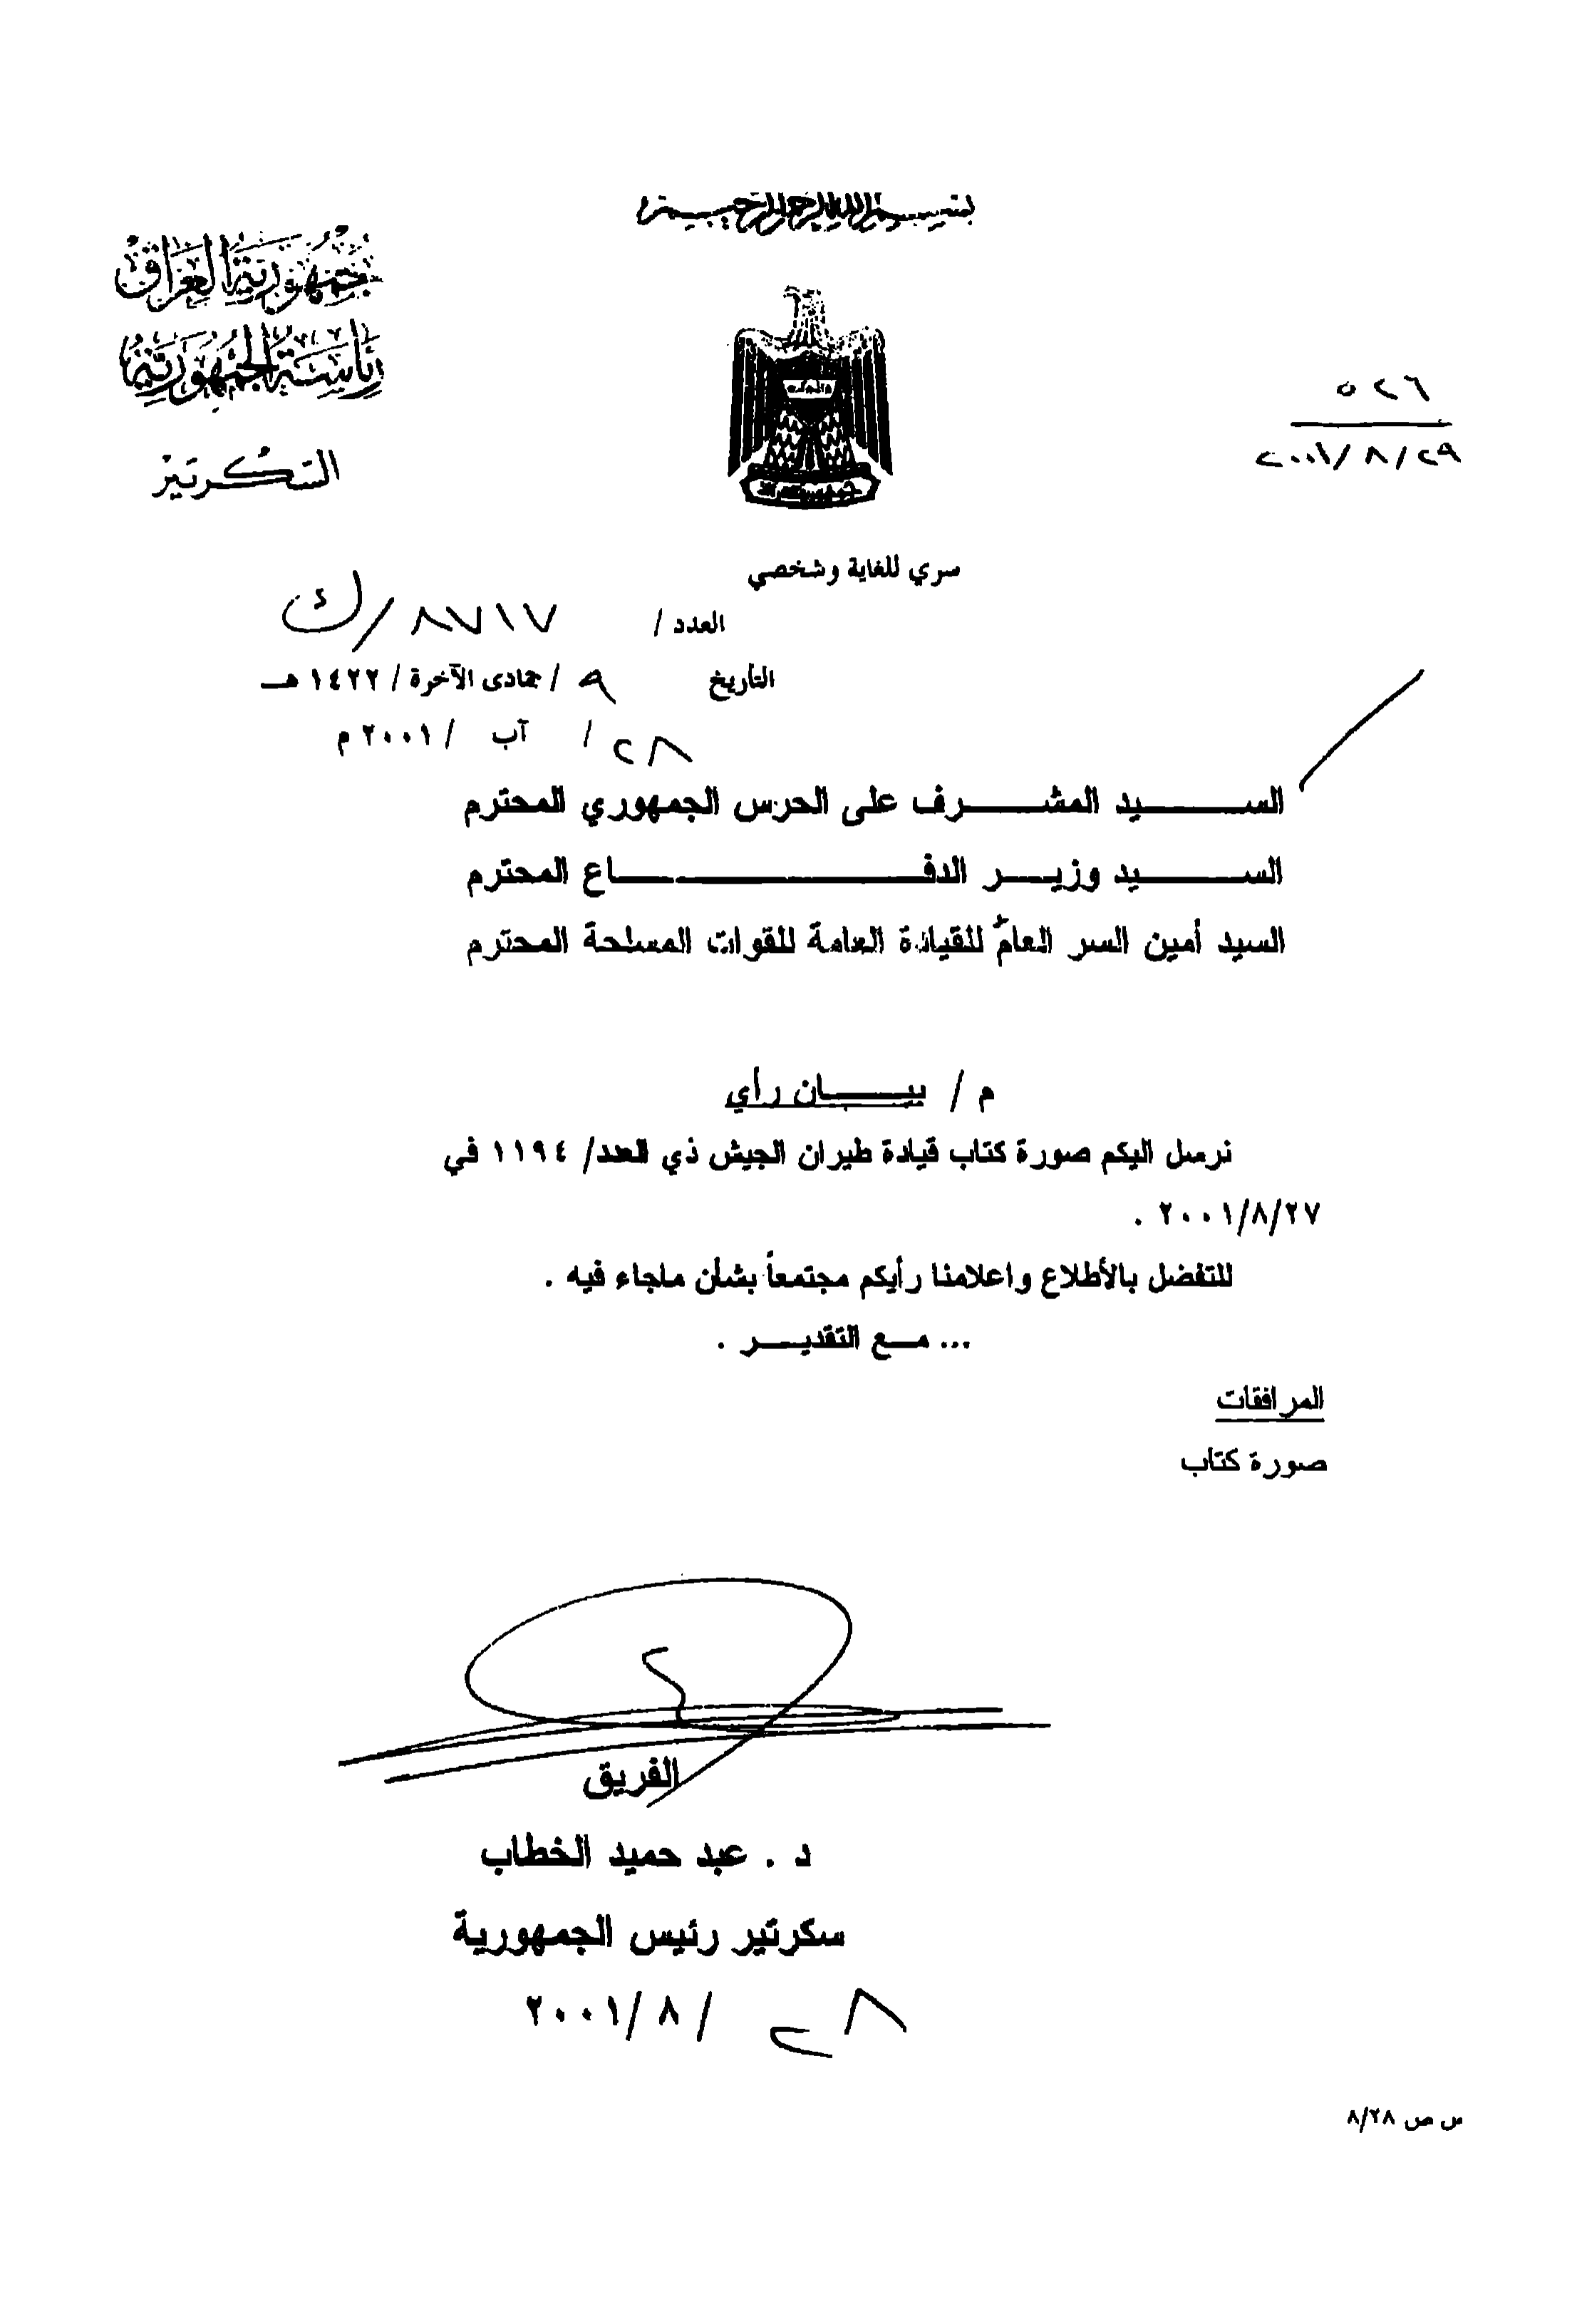 بسم الله الرحمن الرحيم
جمهورية العراق
رئاسة الجمهورية
السكرتير
٥٢٦
٢٠٠١/٨/٢٩
سري للغاية وشخصي
العدد / ٨٧١٧/ك
التأريخ ٩ / جمادى الآخرة / ١٤٢٢ هـ
٢٨ / آب / ٢٠٠١ م
الســـيد المشـــرف على الحرس الجمهوري المحترم
الســـيد وزيـــر الدفـــاع المحترم
السيد أمين السر العام للقيادة العامة للقوات المسلحة المحترم
م / بيـــان رأي
نرسل اليكم صورة كتاب قيادة طيران الجيش ذي العدد/ ١١٩٤ في
٢٠٠١/٨/٢٧ .
للتفضل بالأطلاع واعلامنا رأيكم مجتمعاً بشأن ماجاء فيه .
... مـــع التقديـــر .
المرافقات
صورة كتاب
الفريق
د . عبد حميد الخطاب
سكرتير رئيس الجمهورية
٢٨ / ٨ /٢٠٠١
س ص ٨/٢٨